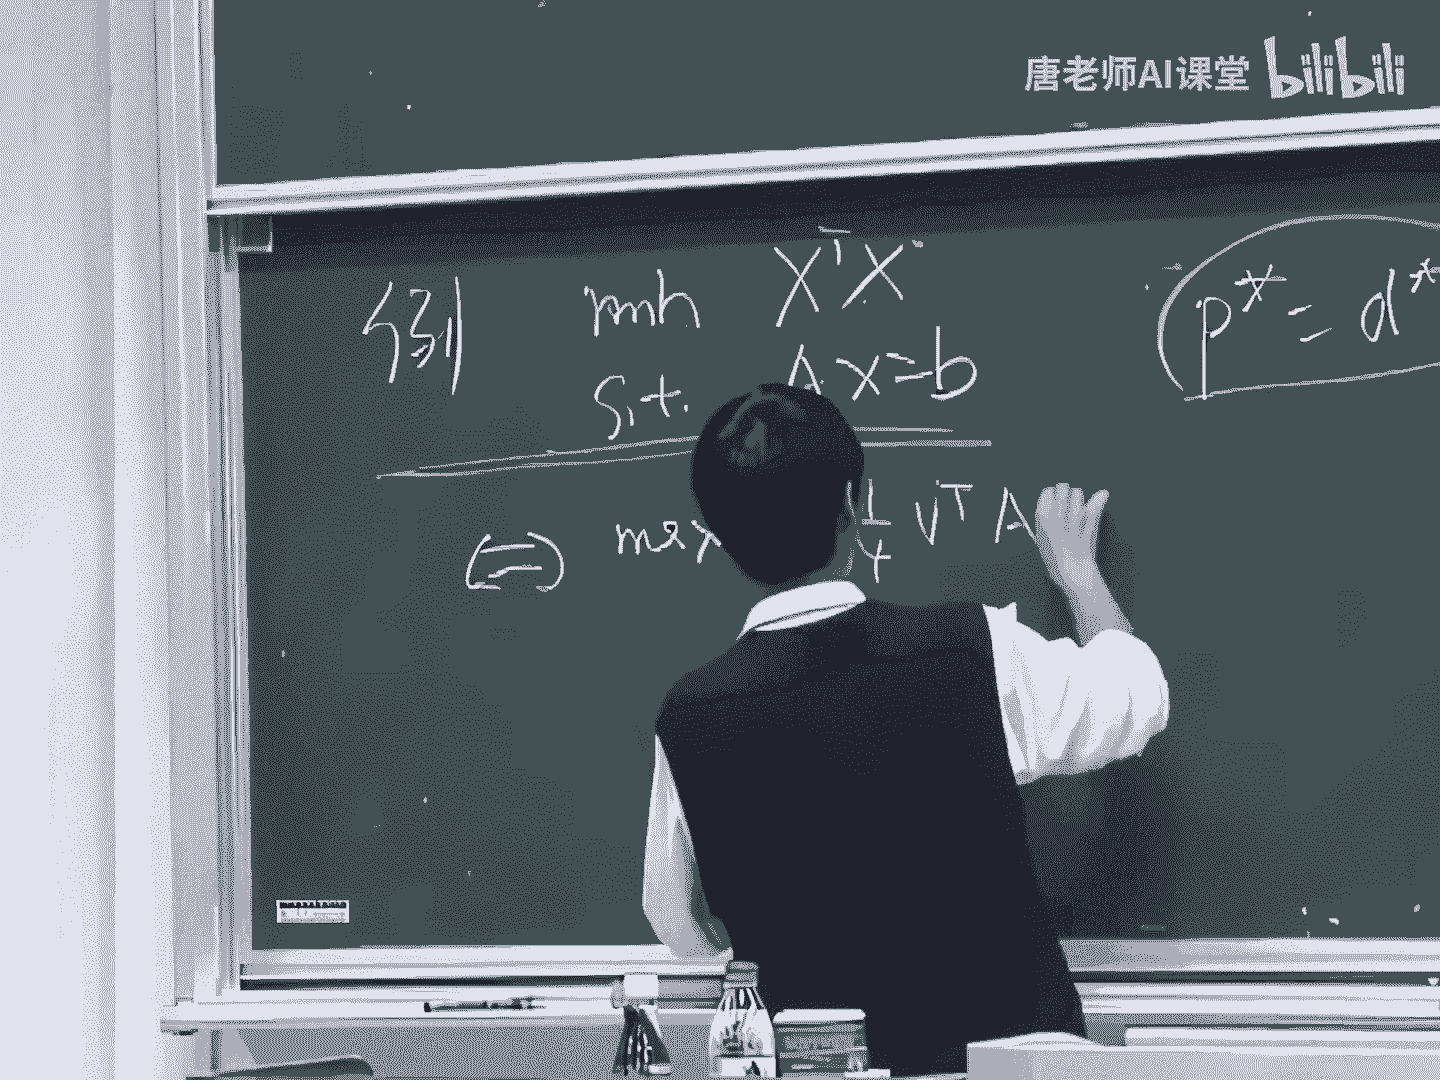 唐老师AI课堂 bilibili
例 min XᵀX
s.t. Ax=b
P*=d*
(二) max 1/4 νᵀA